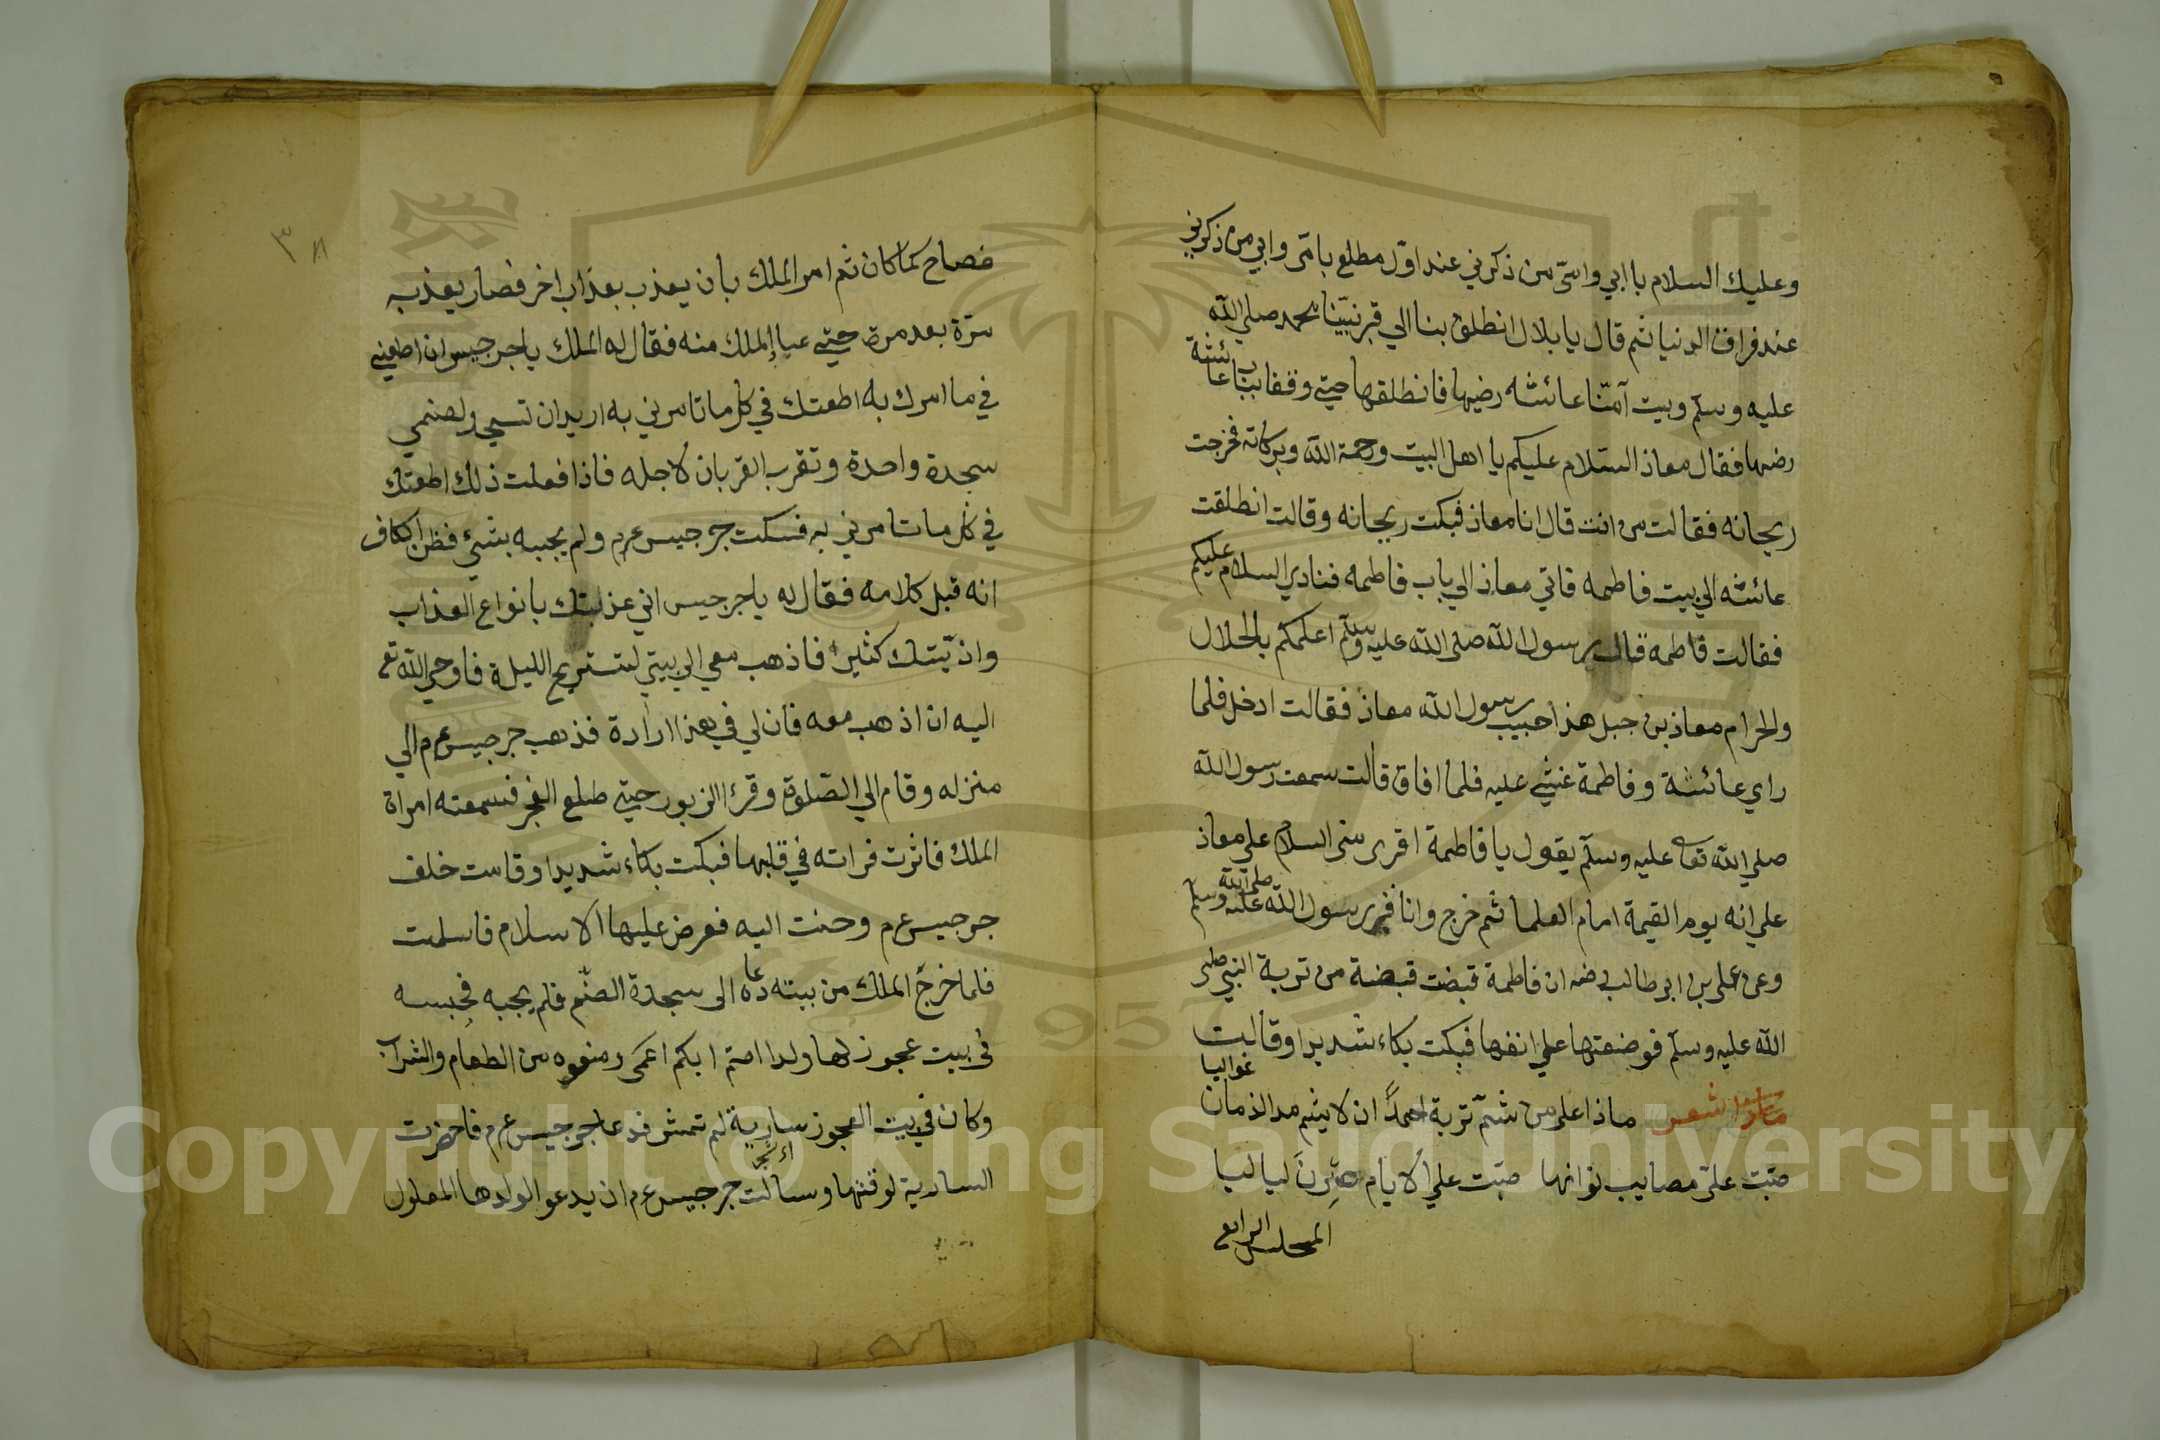 وعليك السلام بابي وامي من ذكرني عند اول مطلع بامي وابي من ذكرني
عند فراق الدنيا ثم قال يا بلال انطلق بنا الي قبر نبينا محمد صلي الله
عليه وسلم وبيت آمنا عائشه رضيها فانطلقها حتي وقفا بباب عائشة
رضيها فقال معاذ السلام عليكم يا اهل البيت ورحمة الله وبركاته فخرجت
ريحانه فقالت من انت قال انا معاذ فبكت ريحانه وقالت انطلقت
عائشه الي بيت فاطمه فاتي معاذ الي باب فاطمه فنادي السلام عليكم
فقالت فاطمه قال رسول الله صلى الله عليه وسلم اعلمكم بالحلال
والحرام معاذ بن جبل هذا حبيب رسول الله معاذ فقالت ادخل فلما
راي عائشة وفاطمة غشي عليه فلما افاق قالت سمعت رسول الله
صلي الله تعالى عليه وسلم يقول يا فاطمة اقرى منى السلام على معاذ
علي انه يوم القيمة امام العلما ثم خرج وانا قبر رسول الله صلى الله عليه وسلم
وعن على بن ابى طالب رضه ان فاطمة قبضت قبضة من تربة النبي صلى
الله عليه وسلم فوضعتها علي انفها فبكت بكاء شديدا وقالت
شعر ماذا على من شم تربة احمداً ان لا يشم مدا الذمان غواليا
صبت على مصايب لو انها صبت علي الايام صرن لياليا
المجلس الرابع
٣٨
فصاح كما كان ثم امر الملك بان يعذب بعذاب اخر فصار يعذبه
مرة بعد مرة حتي عيا الملك منه فقال له الملك يا جرجيس ان اطعني
في ما امرك به اطعتك في كل ما تامرني به اريد ان تسجد لصنمي
سجدة واحدة وتقرب القربان لاجله فاذا فعلت ذلك اطعتك
في كل ما تامرني به فسكت جرجيس عرم ولم يجبه بشئ فظن الكافر
انه قبل كلامه فقال له يا جرجيس اني عذبتك بانواع العذاب
واذيتك كثيرا فاذهب معي الي بيتي لتستريح الليلة فاوحي الله تع
اليه ان اذهب معه فان لي في هذا ارادة فذهب جرجيس عرم الي
منزله وقام الي الصلوة وقرا الزبور حتي طلع الفجر فسمعته امراة
الملك فاثرت قراته في قلبها فبكت بكاء شديدا وقامت خلف
جرجيس عرم وحنت اليه فعرض عليها الاسلام فاسلمت
فلما خرج الملك من بيته دعاه الى سجدة الصنم فلم يجبه فحبسه
فى بيت عجوز لها ولدا اصم ابكم اعمى ومنعوه من الطعام والشراب
وكان في بيت العجوز سارية لم تمش فدعا جرجيس عرم فاحضرت
السارية لوقتها وسالت جرجيس عرم ان يدعوا لولدها المعلول
Copyright © King Saud University
1957